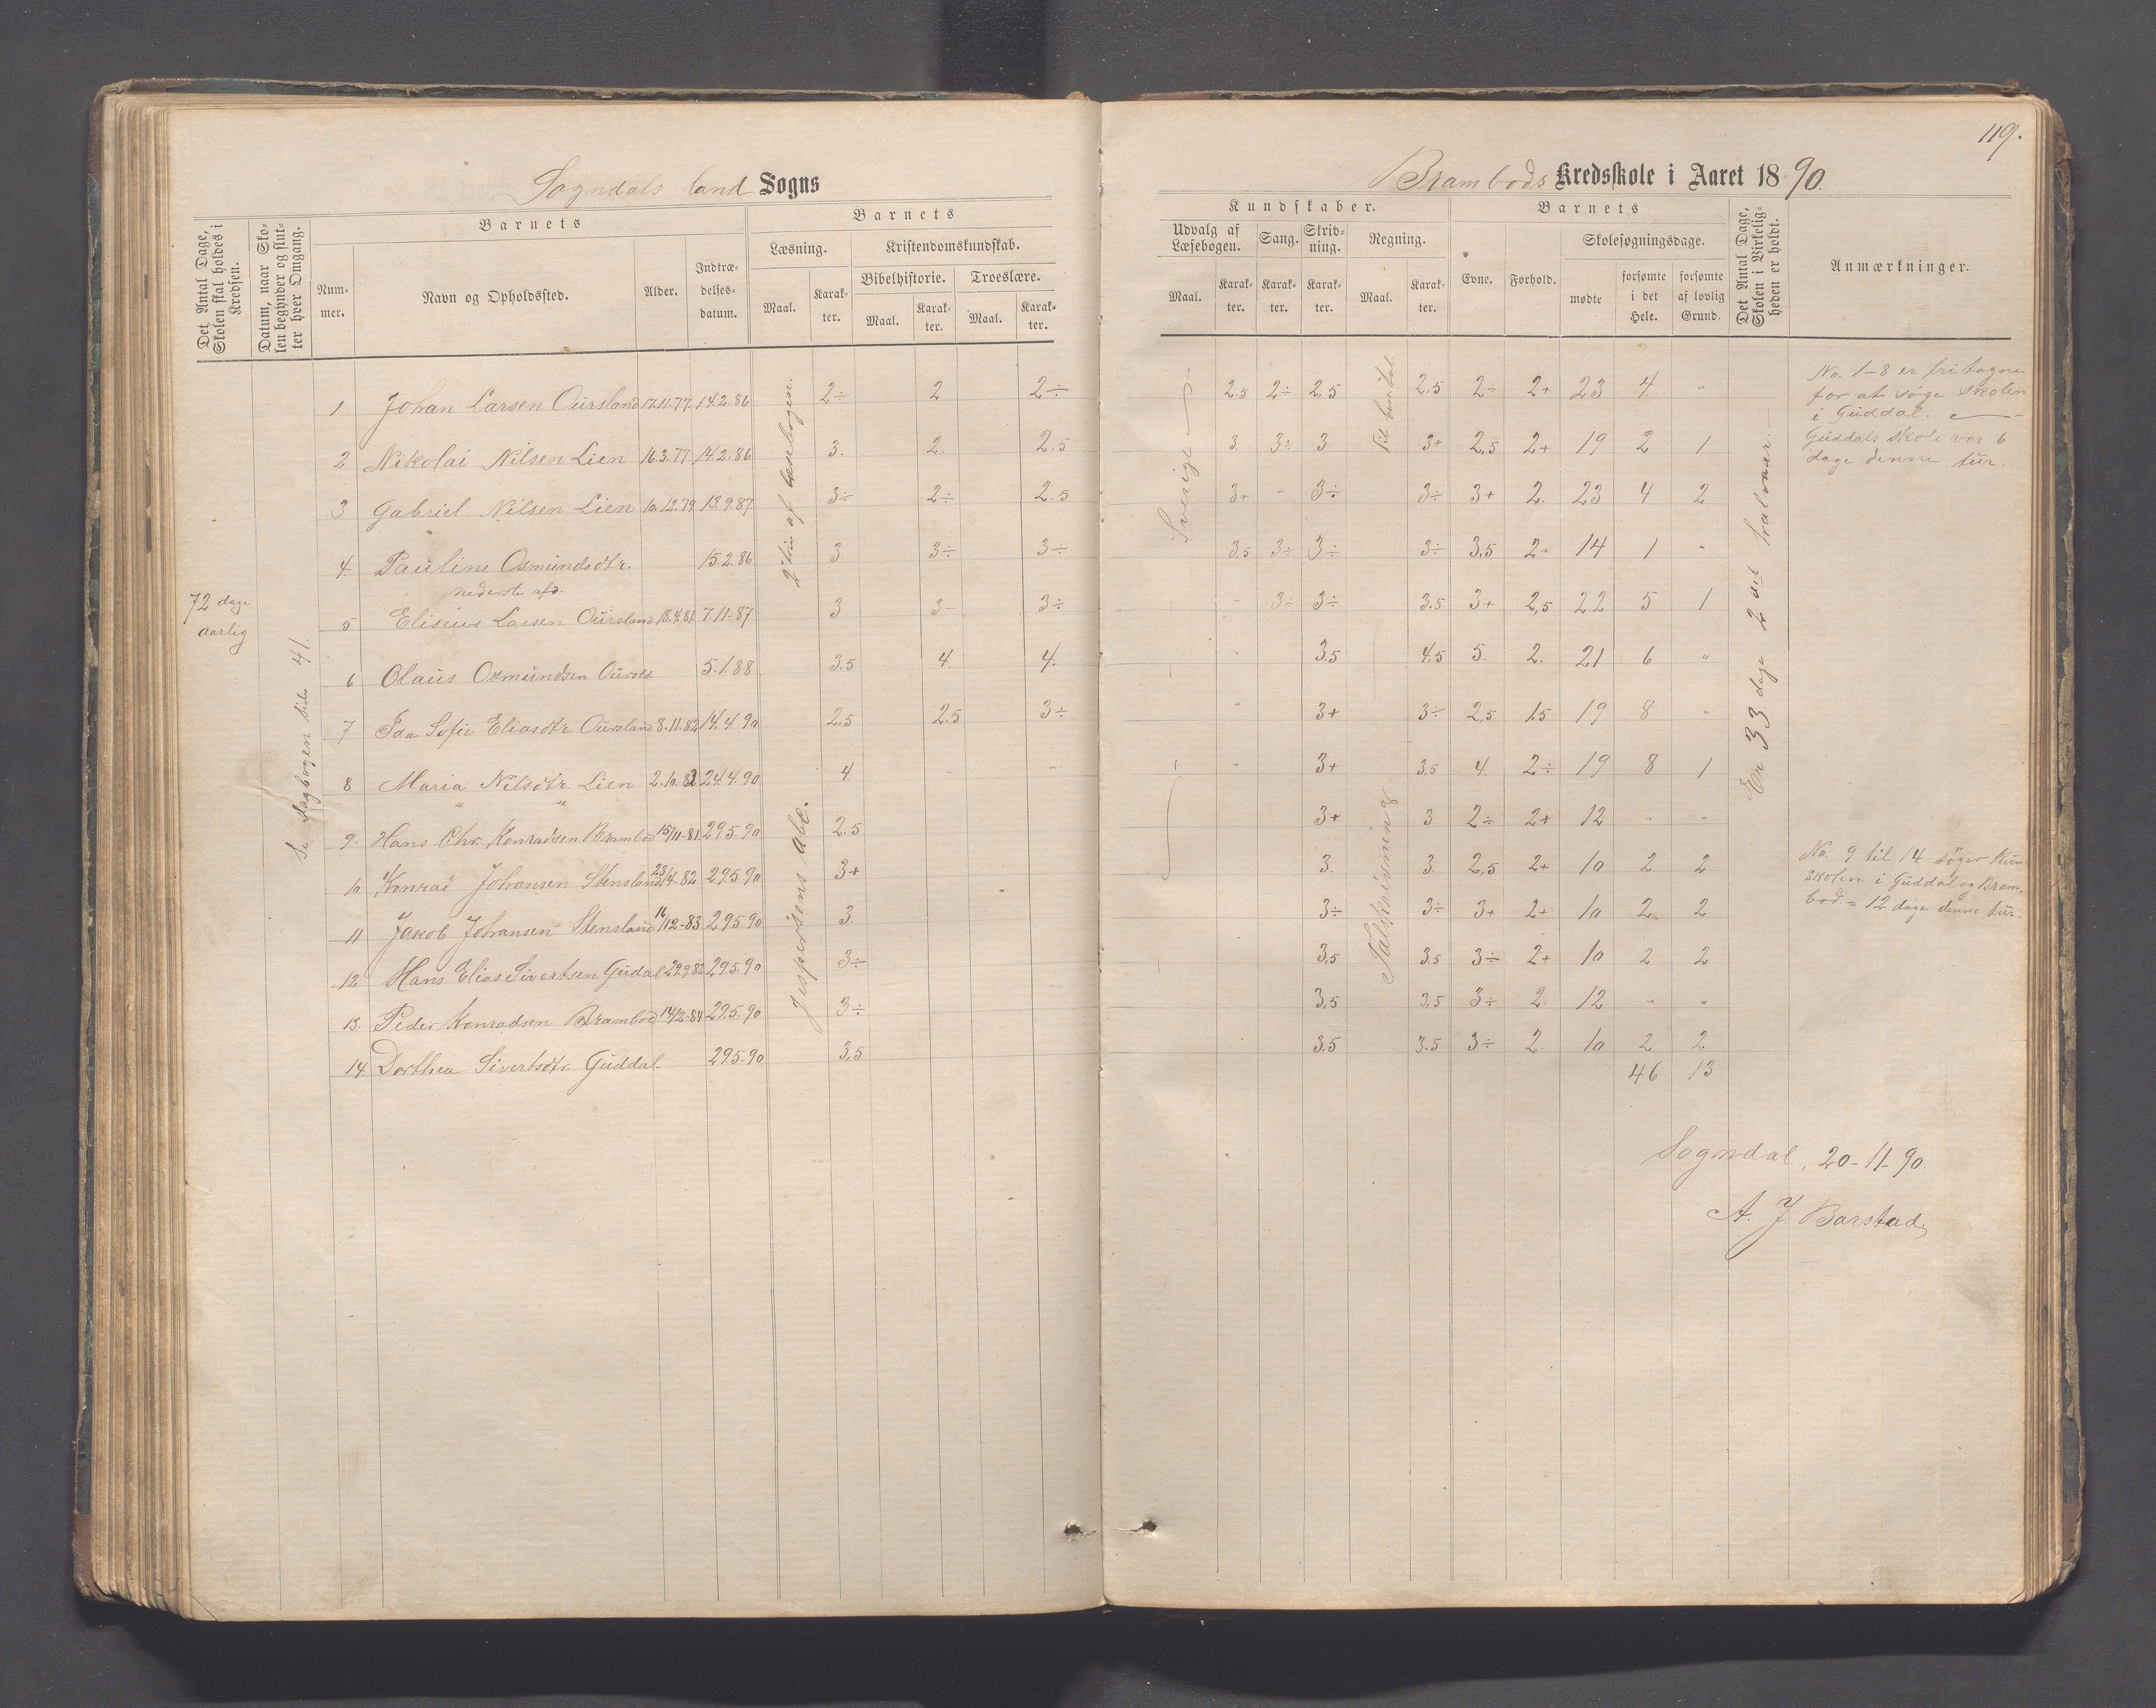 119.
Sogndals land Sogns
Brambods Kredsskole i Aaret 1890.
Det Antal Dage, Skolen skal holdes i Kredsen.
Datum, naar Skolen begynder og slutter hver Omgang.
Barnets
Nummer.
Navn og Opholdssted.
Alder.
Indtrædelsesdatum.
Barnets
Læsning.
Maal.
Karakter.
Kristendomskundskab.
Bibelhistorie.
Maal.
Karakter.
Troeslære.
Maal.
Karakter.
Kundskaber.
Udvalg af Læsebogen.
Maal.
Karakter.
Sang.
Karakter.
Skrivning.
Karakter.
Regning.
Maal.
Karakter.
Barnets
Evne.
Forhold.
Skolesøgningsdage.
mødte
forsømte i det Hele.
forsømte af lovlig Grund.
Det Antal Dage, Skolen i Virkeligheden er holdt.
Anmærkninger.
72 dage aarlig
Se dagbogen side 41.
2 trin af læsebogen.
Jespersens Abc.
Sverige
Er 33 dage 2det halvaar.
1 Johan Larsen Oursland 17.11.77. 14.2.86 2÷ 2 2÷ 2.5 2÷ 2,5 2,5 2÷ 2+ 23 4. "
2 Nikolai Nilsen Lien 16.3.77. 14.2.86 3. 2. 2.5 3. 3÷ 3. 3+ 2,5 2+ 19 2 1
3 Gabriel Nilsen Lien 10.12.79. 13.9.87. 3÷ 2÷ 2.5 3+ " 3÷ 3÷ 3+ 2. 23 4 2
4. Pauline Osmundsdtr. 15.2.86 3 3÷ 3÷ 3,5 3÷ 3÷ 3÷ 3,5 2+ 14 1 "
nederste afd.
5 Eliseus Larsen Oursland 18.4.81. 7.11-87 3 3- 3÷ - 3÷ 3÷ 3.5 3+ 2,5 22 5 1
6 Olaus Osmundsen Oursld. 5.1.88 3.5 4. 4. " 3.5 4,5 5. 2. 21 6 "
7 Ida Sofie Eliasdtr. Oursland 8.11.82 14.4.90 2.5 2.5 3÷ " 3+ 3÷ 2,5 1.5 19 8 "
8 Maria Nilsdtr. Lien 2.10.82 24.4.90 4 - " " 3+ 3.5 4. 2÷ 19 8 1
9. Hans Chr. Konradsen Brambod 15/11-81. 29.5.90 2.5 3+ 3. 2÷ 2+ 12 " "
10 Konrad Johansen Stensland 23/4-82 29.5.90 3+ 3. 3. 2,5 2+ 10 2 2
11 Jakob Johansen Stensland 16/12-83 29.5.90 3. 3÷ 3÷ 3+ 2+ 10 2 2
12 Hans Elias Sivertsen Gudal 29.9.82 29.5.90 3÷ 3,5 3.5 3÷ 2+ 10 2 2
13. Peder Konradsen Brambod 14/2-84 29.5.90 3÷ 3,5 3,5 3÷ 2 12 " "
14 Dorthea Sivertsdtr. Guddal. 29.5-90 3,5 3.5 3.5 3÷ 2. 10 2 2
46 13
No. 1-8 er fritagne
for at søge skolen
i Guddal.
Guddals skole var 6
dage denne tur.
No. 9 til 14 søger kun
skolen i Guddal og Bram-
bod. = 12 dage denne tur.
Sogndal, 20-11-90.
A. J. Barstad.